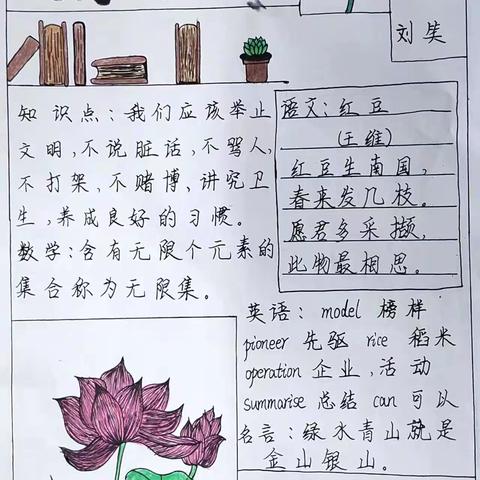 刘笑
知识点：我们应该举止
文明，不说脏话，不骂人，
不打架，不赌博、讲究卫
生，养成良好的习惯。
数学：含有无限个元素的
集合称为无限集。
语文：红豆
（王维）
红豆生南国，
春来发几枝。
愿君多采撷，
此物最相思。
英语：model 榜样
pioneer 先驱 rice 稻米
operation 企业，活动
summarise 总结 can 可以
名言：绿水青山就是
金山银山。